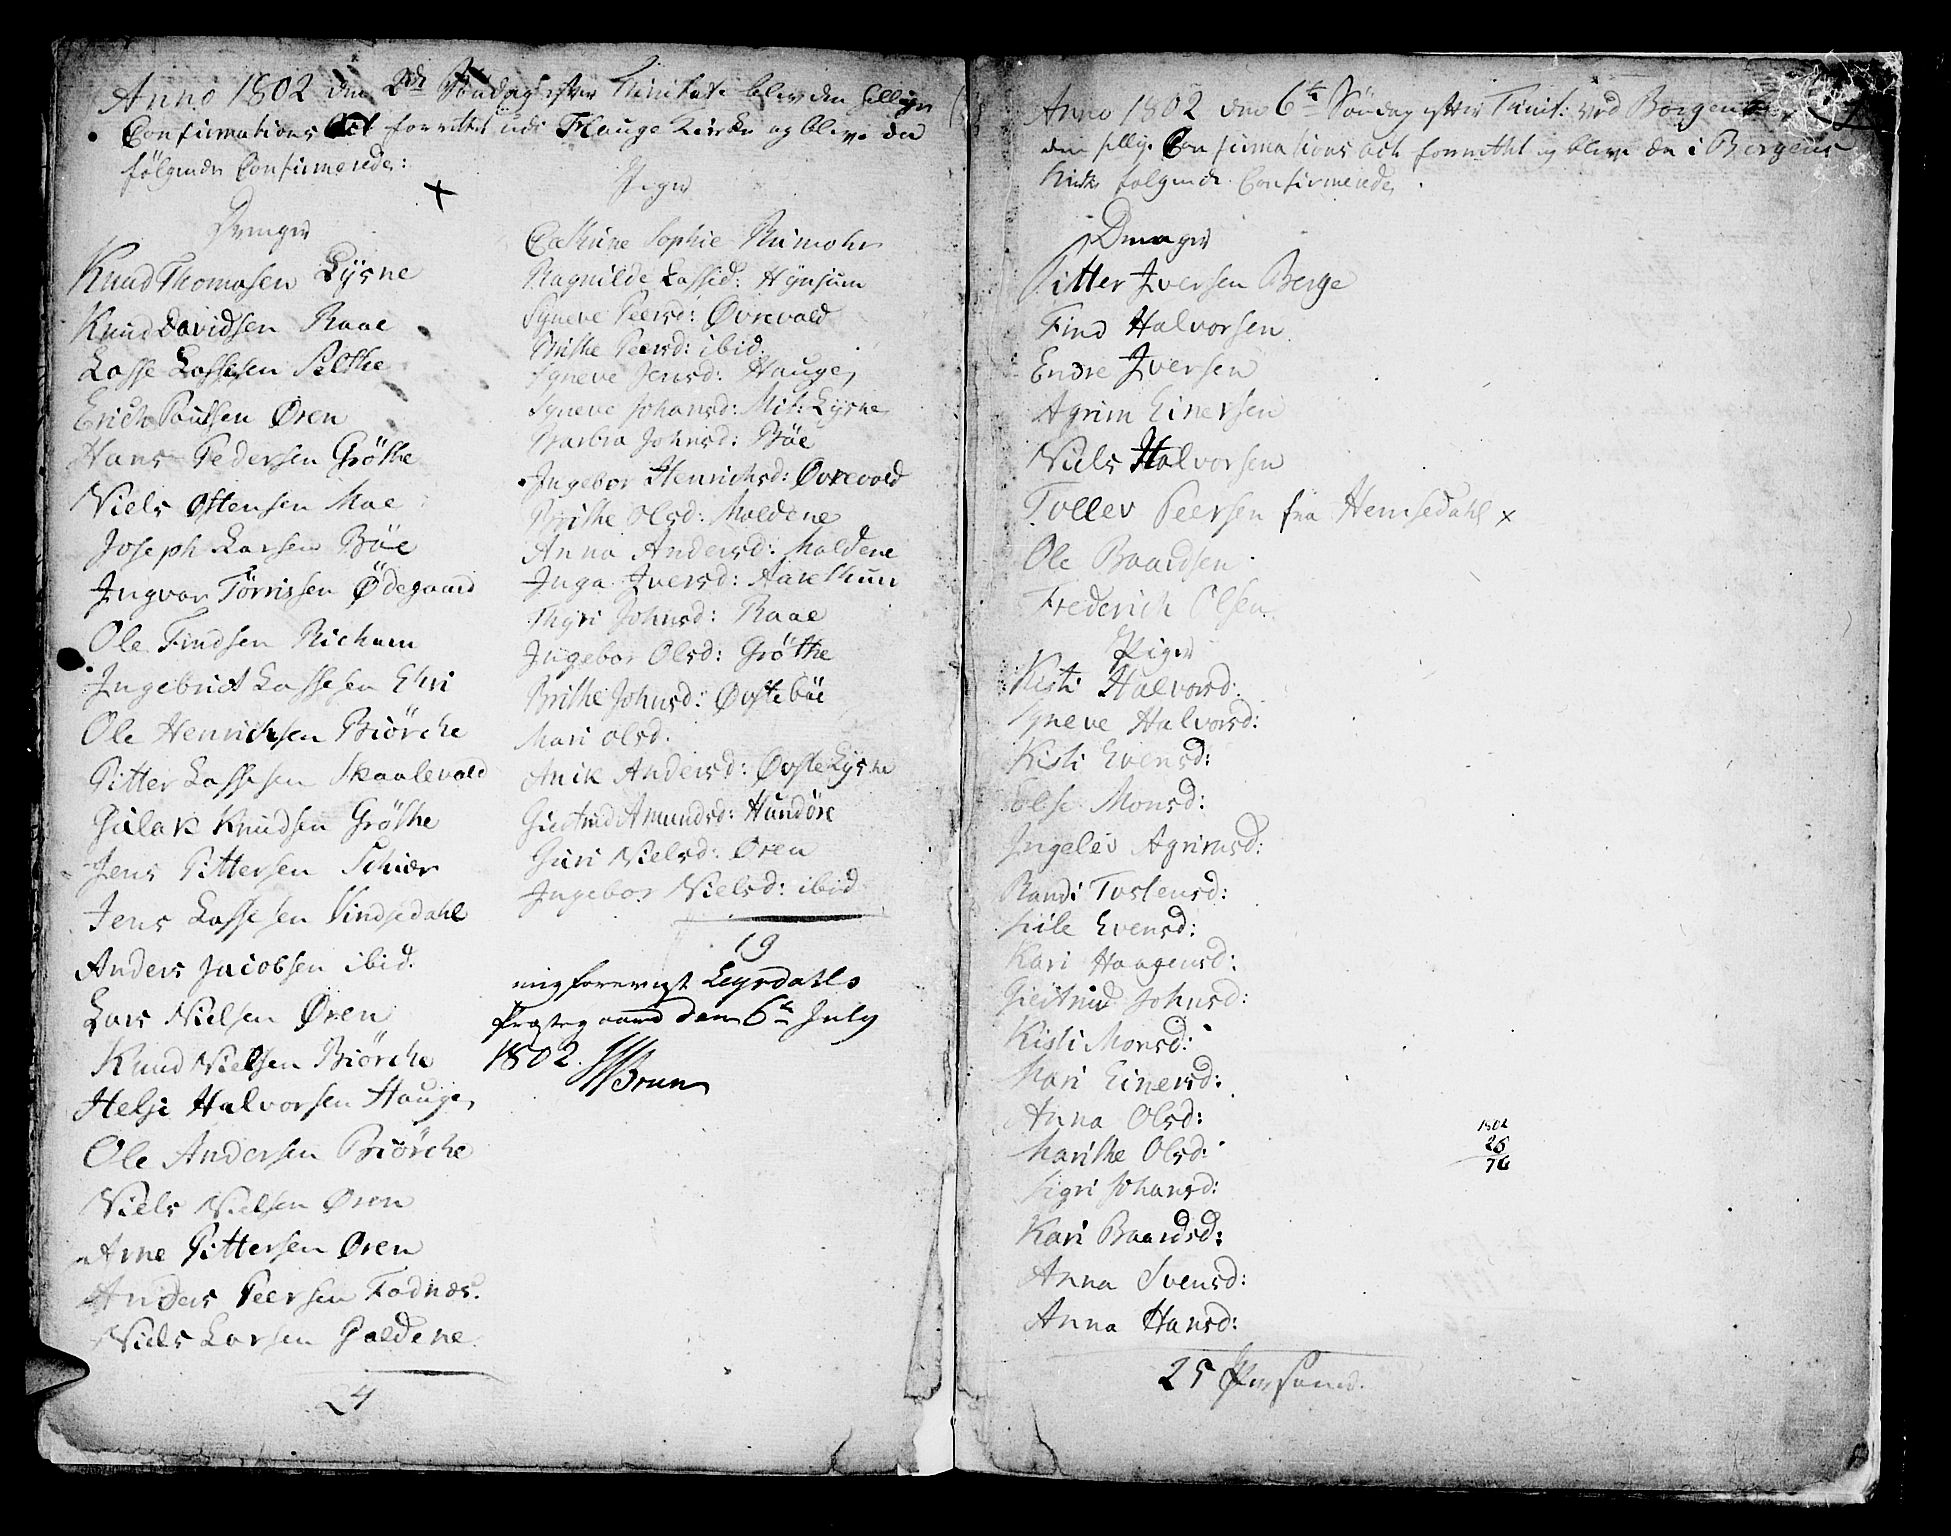 Anno 1802 den 2den Söndag efter Trinitatis blev den hellige
Confirmations Act forrettet udi Hauge Kirke og bleve da
følgende Confirmerede:
Drenge
Knud Thomasen Lysne
Knud Davidsen Raae
Lasse Lassesen Selthe
Erich Poulsen Øren
Hans Pedersen Gröthe
Niels Ostensen Moe
Joseph Larsen Böe
Ingvar Törrissen Ødegaard
Ole Findsen Richum
Ingebrict Lassesen Eri
Ole Henrichsen Biörche
Pitter Lassesen Skaalevold
Gulak Knudsen Gröthe
Jens Pittersen
Jens Lassesen Vindedahl
Anders Jacobsen ibid.
Lars Nielsen Øren
Knud Nielsen Biörche
Helje Halvorsen Hauge
Ole Andersen Biörche
Niels Nielsen Øren
Arne Pittersen Øren
Anders Peersen Fodnæs.
Niels Larsen Galdene
24
Piger
Cathrine Sophie Rumohr
Ragnilde Lassed: Hynjum
Synneve Peersd: Øvrevold
Brithe Peersd: ibid.
Syneve Jensd: Hauge
Syneve Johansd: Mit: Lysne
Barbra Johnsd: Böe
Ingebor Henrichsd: Øvrevold
Brithe Olsd: Moldene
Anna Andersd: Moldene
Inga Iversd: Aarethun
Thyri Johnsd: Raae
Ingebor Olsd: Gröthe
Brithe Johnsd: Øvsteböe
Mari Olsd.
Anik Andersd: Øvste Lysne
Giertrud Amundsd: Hundöre
Guri Nielsd: Øren
Ingebor Nielsd: ibid.
19
Leyrdahls
Præstegaard den 6te July
1802. Brun
Anno 1802 den 6te Söndag efter Trinit: ved Borgen
den hellige Confirmations Act forrettet og bleve da i Borgens
Kirke følgende Confirmerede
Drenge
Pitter Iversen Berge
Find Halvorsen
Endre Iversen
Agrim Einersen
Niels Halvorsen
Tollev Peersen fra Hemsedahl x
Ole Baardsen
Frederich Olsen
Piger
Kisti Halvorsd:
Syneve Halvorsd:
Kisti Evensd:
Else Monsd:
Ingelev Agrimsd:
Randi Tostensd:
Evensd:
Kari Haagensd:
Giertrud Johnsd:
Kisti Monsd:
Mari Einersd:
Anna Olsd:
Marithe Olsd:
Sigri Johansd:
Kari Baardsd:
Anna Svensd:
Anna Hansd:
25 Personer.
1802
26
76